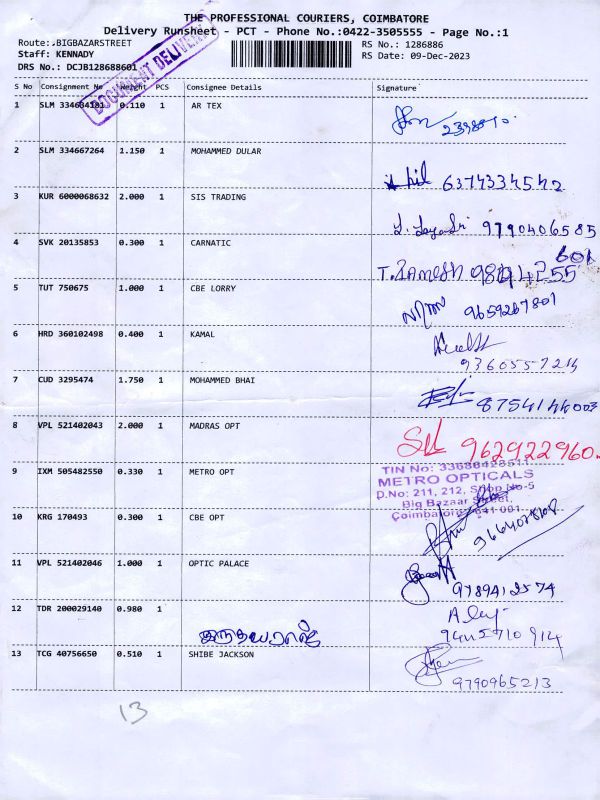 THE PROFESSIONAL COURIERS, COIMBATORE
Delivery Runsheet - PCT - Phone No.:0422-3505555 - Page No.:1
Route:.BIGBAZARSTREET
RS No.: 1286886
Staff: KENNADY
RS Date: 09-Dec-2023
DRS No.: DCJB128688601
DOCUMENT DELIVERY
S No Consignment No Weight PCS Consignee Details Signature
1 SLM 334604181 0.110 1 AR TEX
2 SLM 334667264 1.150 1 MOHAMMED DULAR
6374334542
3 KUR 6000068632 2.000 1 SIS TRADING
9790406585
4 SVK 20135853 0.300 1 CARNATIC
T. RAMESH
601
5 TUT 750675 1.000 1 CBE LORRY
9659267801
6 HRD 360102498 0.400 1 KAMAL
7 CUD 3295474 1.750 1 MOHAMMED BHAI
8754144003
8 VPL 521402043 2.000 1 MADRAS OPT
962922960
9 IXM 505482550 0.330 1 METRO OPT
TIN No:
METRO OPTICALS
D.No: 211, 212, Shop No-5
Big Bazaar Street,
Coimbatore - 641 001.
10 KRG 170493 0.300 1 CBE OPT
11 VPL 521402046 1.000 1 OPTIC PALACE
9789412574
12 TDR 200029140 0.980 1
13 TCG 40756650 0.510 1 SHIBE JACKSON
9790965213
13